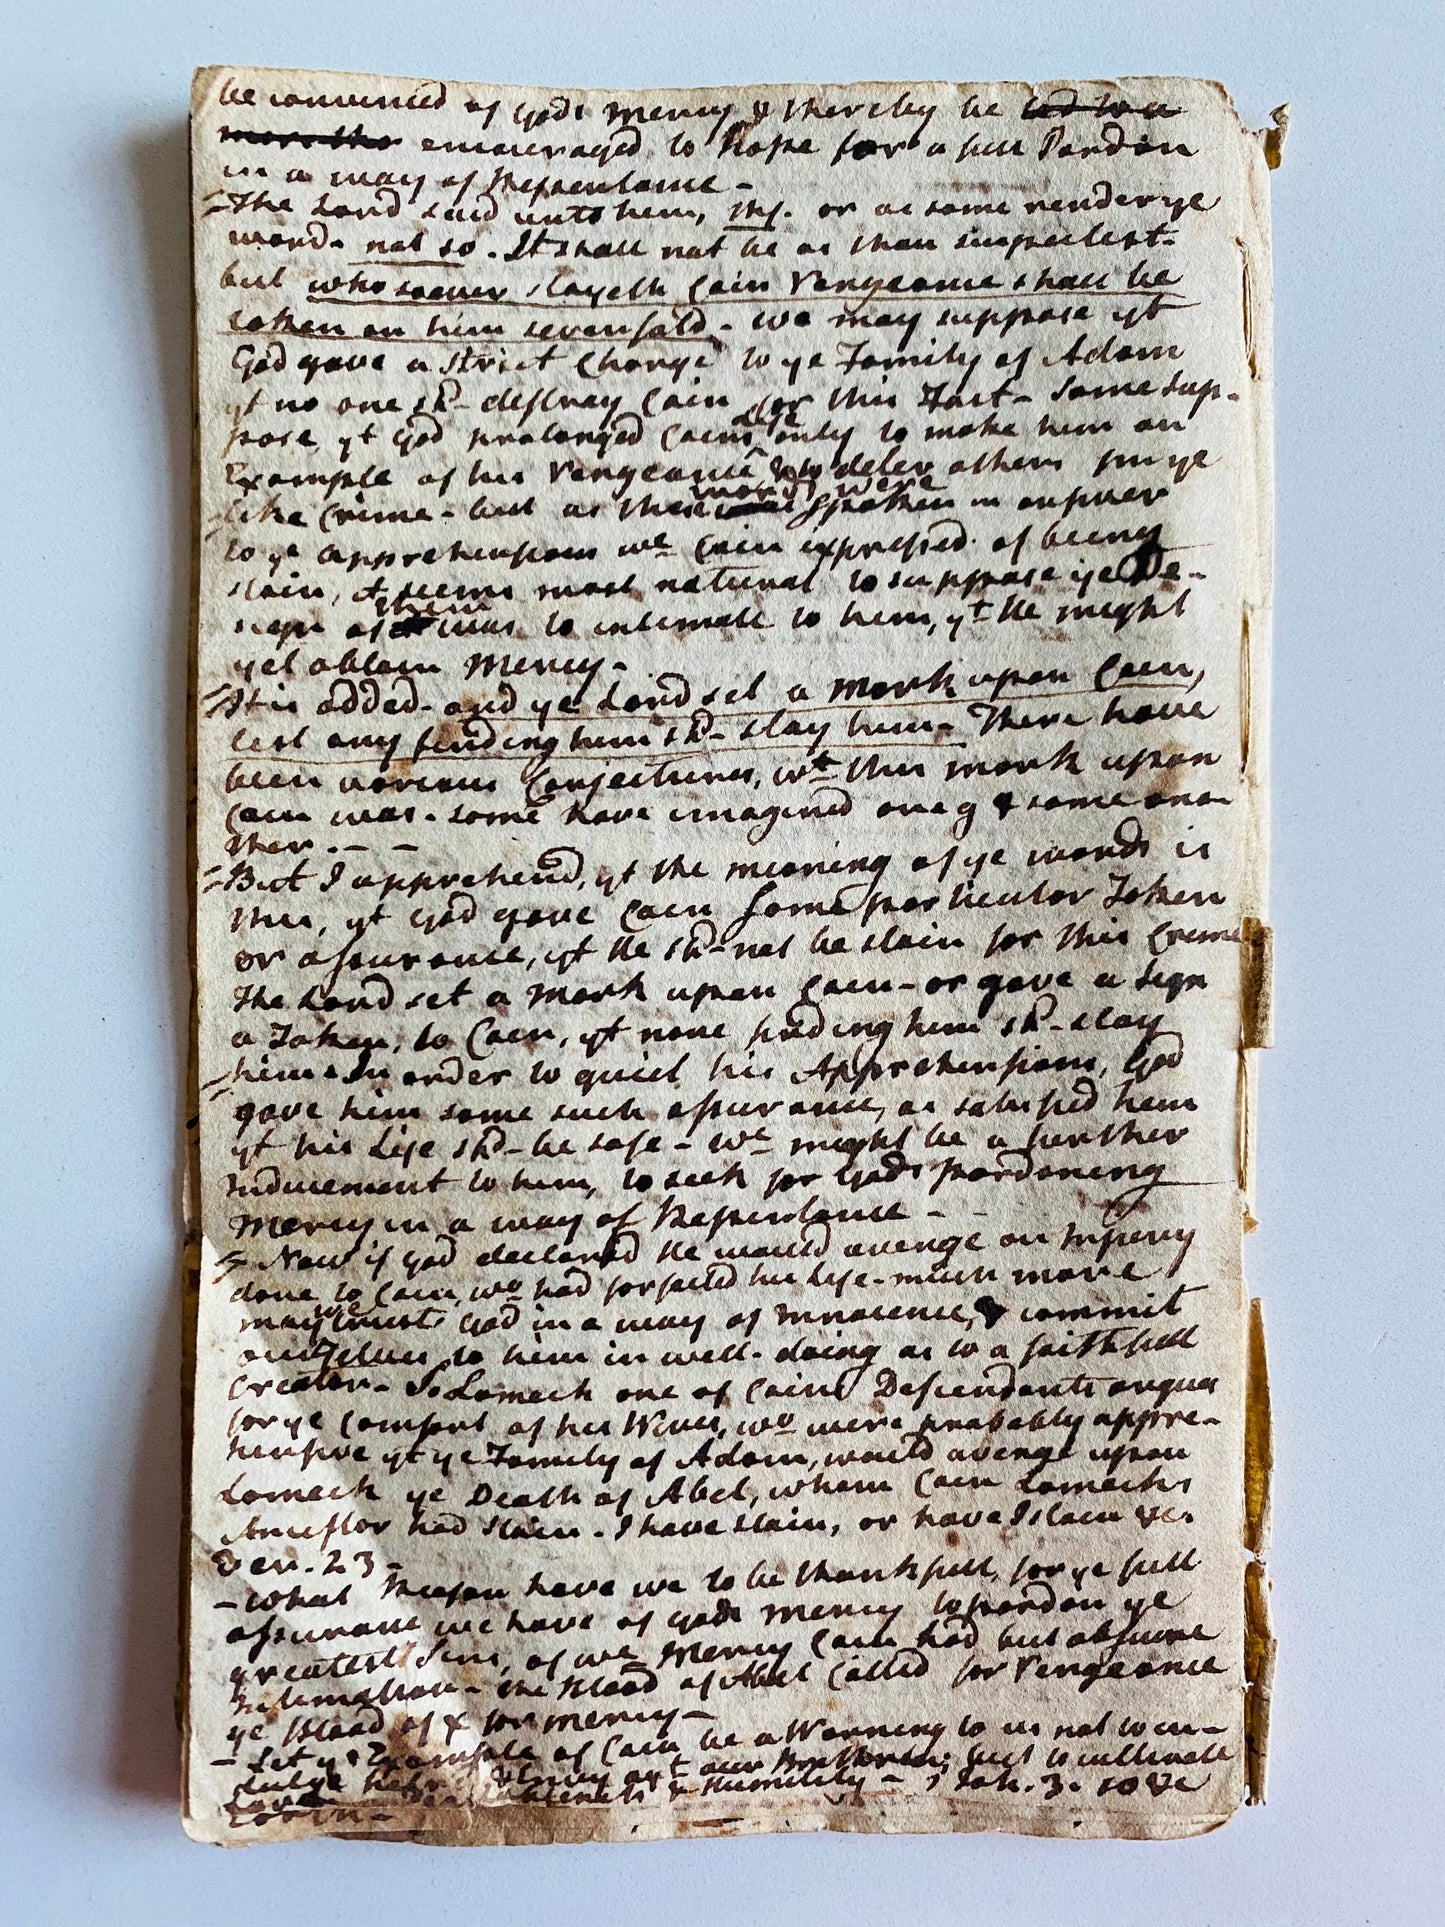 be convinced of Gods Mercy & thereby be led to a
more tho encouraged to hope for a full Pardon
in a way of Repentance -
= The Lord said unto him, Ths. or as some render ye
word - not so. It shall not be as thou suspectest -
but whosoever slayeth Cain Vengeance shall be
taken on him sevenfold - We may suppose yt
God gave a Strict Charge to ye Family of Adam
yt no one shd - destroy Cain for this Fact - Some sup-
pose, yt God prolonged Cains Life only to make him an
Example of his Vengeance & to deter others frm ye
like Crime - but as these words were spoken in answer
to ye apprehensions wc Cain expressed of being
slain, it seems most natural to suppose ye De-
sign of them was to intimate to him, yt He might
yet obtain Mercy -
= It is added - and ye Lord set a mark upon Cain,
lest any finding him shd - slay him - There have
been various Conjectures, wt this mark upon
Cain was - some have imagined one g & some ano-
ther . - -
= But I apprehend, yt the meaning of ye words is
this, yt God gave Cain some particular Token
or assurance, yt He shd - not be slain for this Crime
The Lord set a Mark upon Cain - or gave a Sign
a Token, to Cain, yt none finding him shd - slay
= him - In order to quiet his Apprehensions, God
gave him some such assurance, as satisfied him
yt his Life shd - be safe - wc might be a further
Inducement to him, to seek for Gods pardoning
Mercy in a way of Repentance - -
= Now if God declared He would avenge an Injury
done to Cain, wo had forfeited his Life - much more
may we trust God in a way of Innocence, & commit
ourselves to him in well-doing as to a faithfull
Creator - So Lamech one of Cains Descendants argues
for ye Comfort of his Wives, wo were probably appre-
hensive yt ye Family of Adam, would avenge upon
Lamech ye Death of Abel, whom Cain Lamechs
Ancestor had slain - I have slain, or have I slain &c.
Ver. 23 -
- What Reason have we to be thankfull, for ye full
assurance we have of Gods Mercy to pardon ye
greatest Sins, of wc Mercy Cain had but obscure
Intimation - the Blood of Abel Called for Vengeance
ye Blood of X for mercy -
- Let ye Example of Cain be a Warning to us not to in-
dulge & Envy agt our Brethren; but to cultivate
Love & Humility - 1 Joh. 3. 10 &c